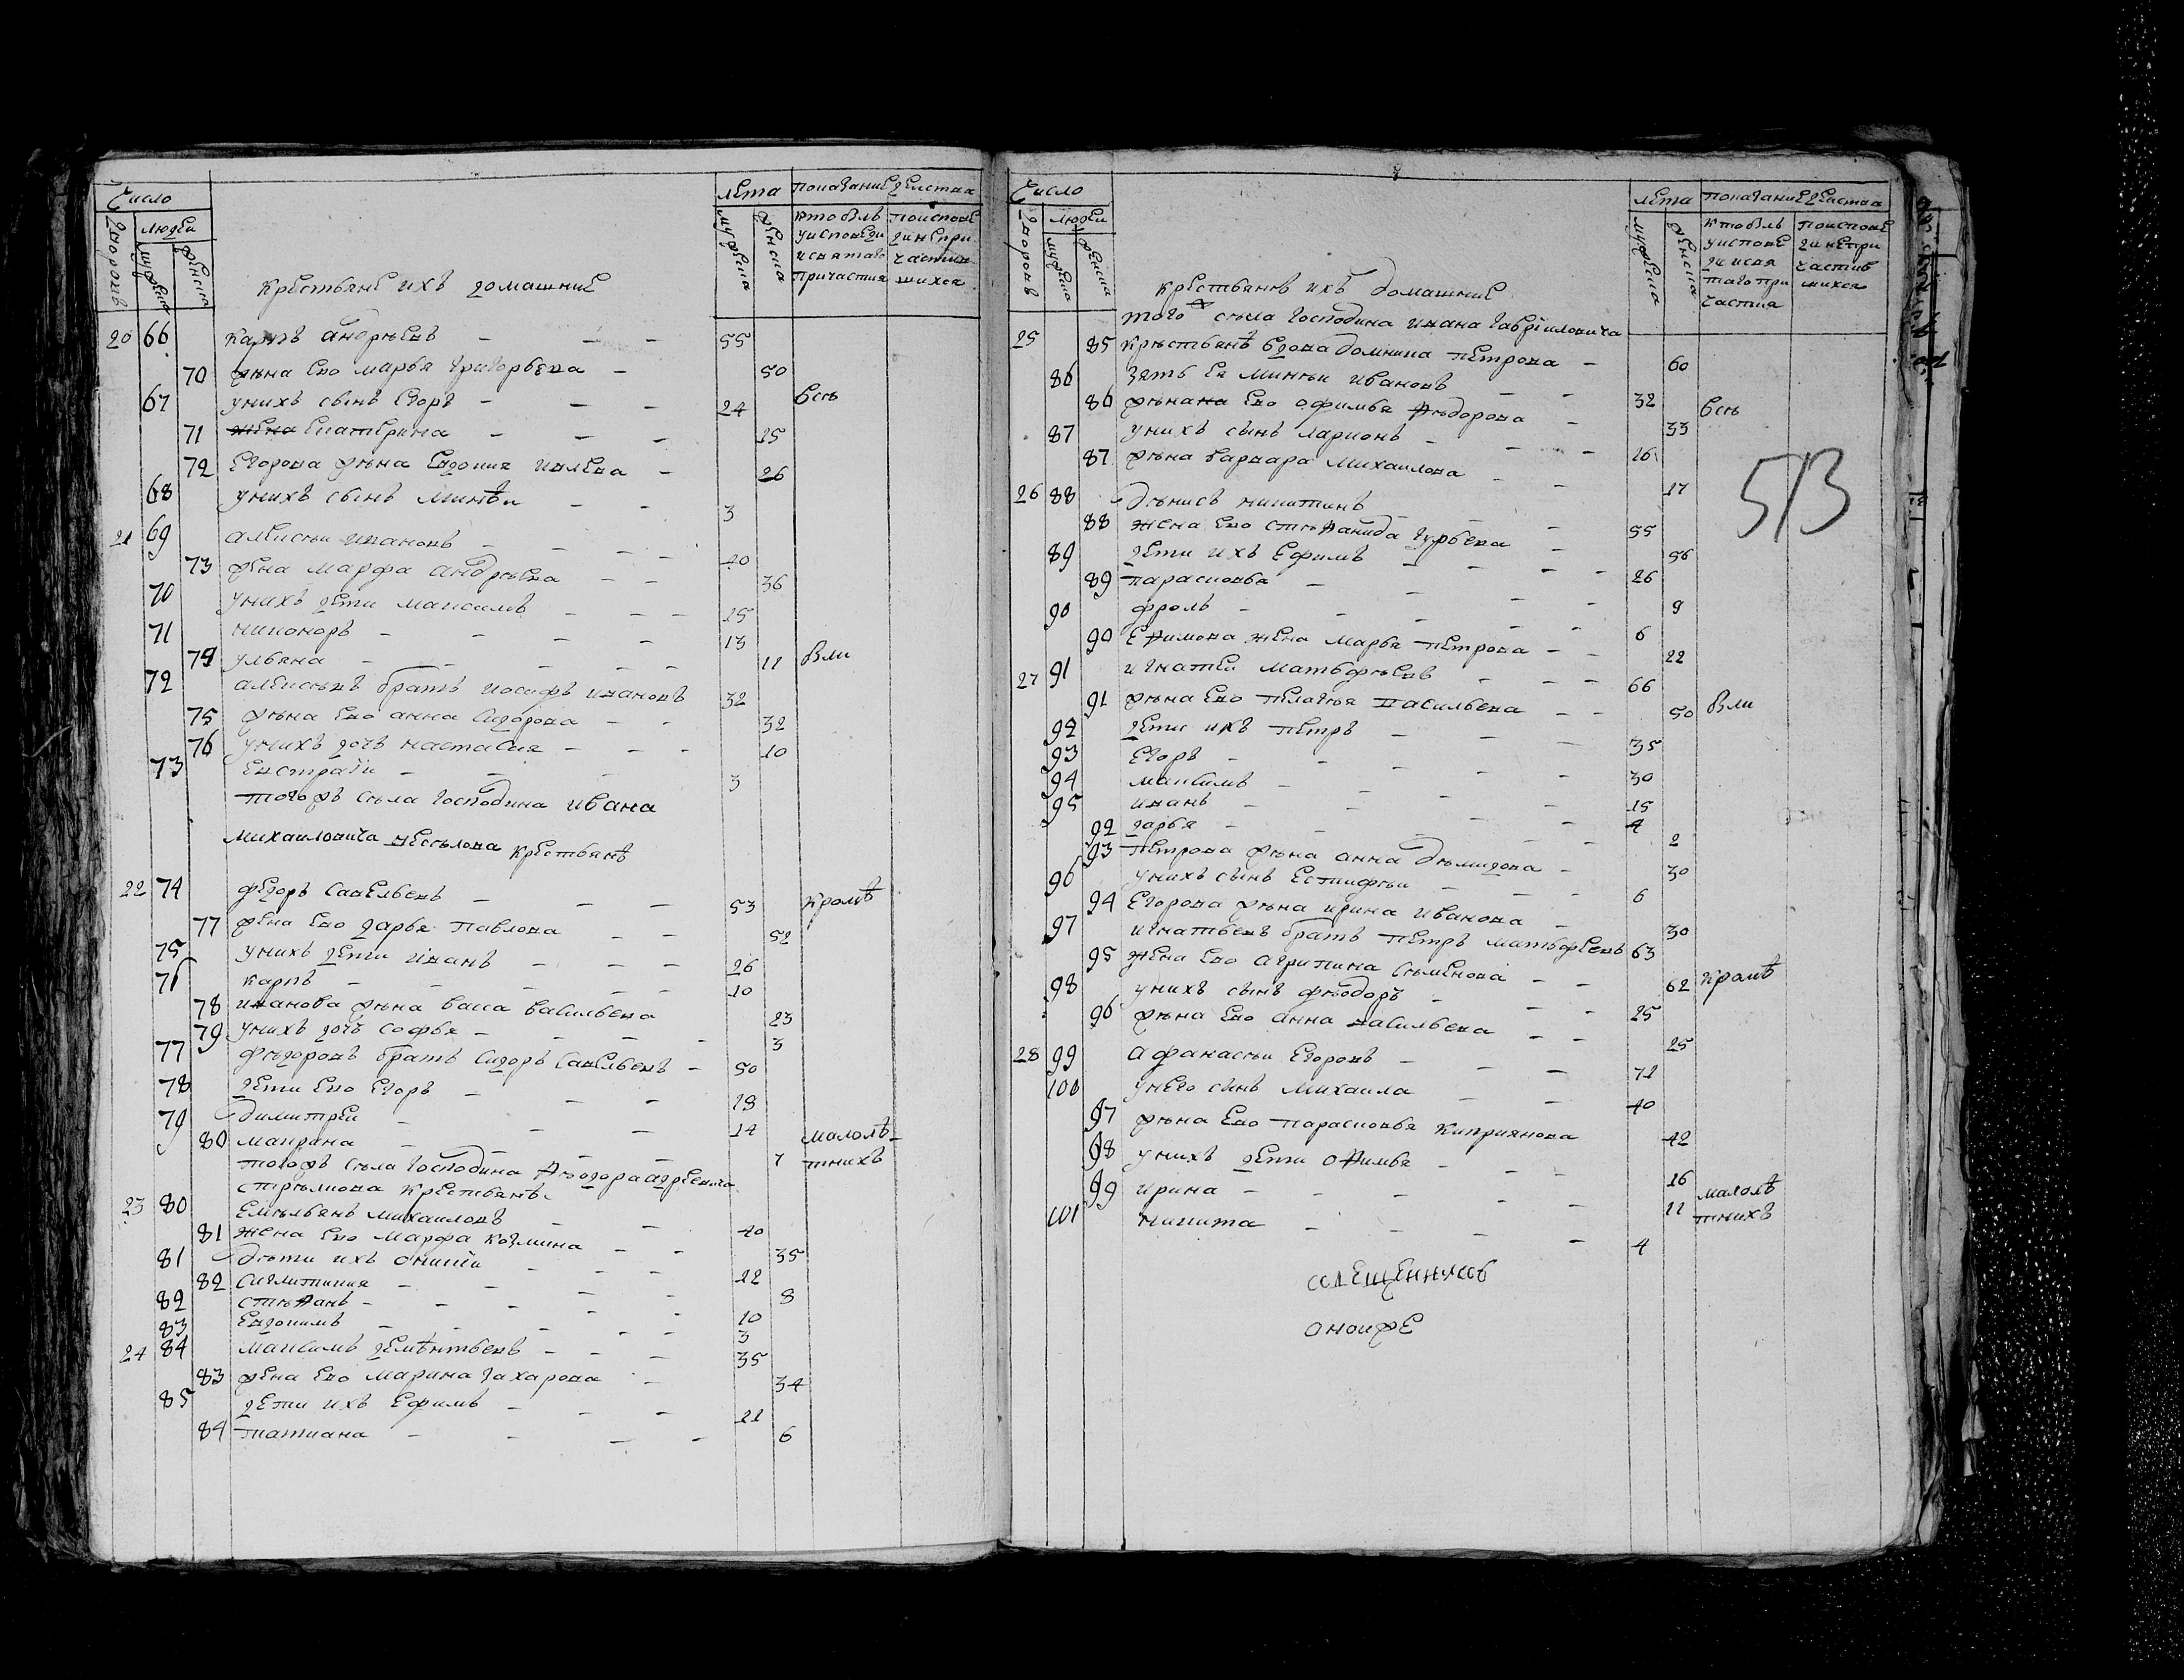 Число
дворовъ
людеи
мужеска
женска
Крестьяне ихъ домашние
лета
мужеска
женска
показание деиства
кто былъ у исповеди и святаго причастия
по исповеди не причастившихся
20 66 Карпъ андрѣевъ 55
70 жѣна Ево марья григорьева 50
67 унихъ сынъ Егоръ 24 Всѣ
71 Екатерина 15
72 Егорова жѣна Евдокия 26
68 унихъ сынъ Минѣи 3
21 69 алексѣи ивановъ 40
73 жена марфа андрѣева 36
70 унихъ дети максимъ 15
71 никоноръ 13
74 ульяна 11 Были
72 алексѣевъ братъ иосифъ ивановъ 32
75 жѣна Ево анна Сидорова 32
76 унихъ дочь настасия 10
73 Евстратiи 3
тогожъ сѣла господина ивана
михаиловича крестьянѣ
22 74 федоръ Савельевъ 53 кромѣ
77 жена Ево дарья павлова 52
75 унихъ дети иванъ 26
76 карпъ 10
78 иванова жѣна васа васильева 23
79 унихъ дочь софья 3
77 фѣдоровъ братъ Сидоръ Савельевъ 50
78 дети Ево Егоръ 18
79 димитреи 14
80 маврина 7 малолѣтнихъ
тогожъ сѣла господина
крестьянъ
23 80 Емѣльянъ михаиловъ 40
81 жена Ево марфа козмина 35
81 дѣти ихъ 12
82 8
82 стѣфанъ 10
83 Евдокимъ 3
24 84 максимъ деменьтьевъ 35
83 жена Ево марина захарова 34
85 дети ихъ Ефимъ 11
84 татиана 6
Число
дворовъ
людеи
мужеска
женска
крестьянъ ихъ домашние
лета
мужеска
женска
показание деиства
кто былъ у исповеди и святаго причастия
по исповеди не причастившихся
того ж сѣла господина ивана гаврiиловича
25 85 крѣстьянѣ вдова домника петрова 60
86 зять Ея минѣи ивановъ 32
86 жѣна Ево офимья фѣдорова 33 Всѣ
87 унихъ сынъ ларионъ 16
87 жѣна варвара михаилова 17
513
26 88 дѣнисъ никитинъ 55
88 жена Ево стѣфанида гурьева 56
89 дети ихъ Ефимъ 26
89 парасковья 9
90 фролъ 6
90 Ефимова жена марья петрова 22
27 91 игнатеи матьфѣевъ 66
91 жѣна Ево пелагѣя васильева 50 Были
92 дети ихъ петръ 35
93 Егоръ 30
94 максимъ 15
95 иванъ 4
92 дарья 2
93 петрова жѣна анна дѣмидова 30
96 унихъ сынъ 6
94 Егорова жѣна ирина иванова 30
97 игнатьевъ братъ петръ матьфѣевъ 63
95 жена Ево агрипина сѣменова 62 кромѣ
98 унихъ сынъ фѣодоръ 25
96 жѣна Ево анна васильева 25
28 99 афанасѣи Егоровъ 72
100 унего сынъ михаила 40
97 жѣна Ево парасковья киприянова 42
98 унихъ дети офимья 16
99 ирина 11 малолѣтнихъ
101 никита 4